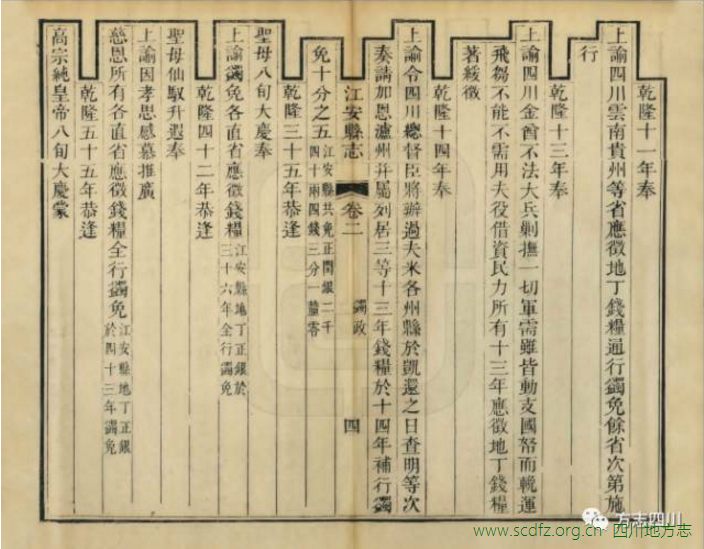 乾隆十一年奉
上諭四川雲南貴州等省應徵地丁錢糧通行蠲免餘省次第施
行
乾隆十三年奉
上諭四川金酋不法大兵剿撫一切軍需雖皆動支國帑而輓運
飛芻不能不需用夫役借資民力所有十三年應徵地丁錢糧
著緩徵
乾隆十四年奉
上諭令四川總督臣將辦過夫米各州縣於凱還之日查明等次
奏請加恩瀘州幷屬列居三等十三年錢糧於十四年補行蠲
江安縣志
卷二
蠲政
四
免十分之五江安縣共免正閏銀二千
四十兩四錢三分一釐零
乾隆三十五年恭逢
聖母八旬大慶奉
上諭蠲免各直省應徵錢糧江安縣地丁正銀於
三十六年全行蠲免
乾隆四十二年恭逢
聖母仙馭升遐奉
上諭因孝思感慕推廣
慈恩所有各直省應徵錢糧全行蠲免江安縣地丁正銀
於四十三年蠲免
乾隆五十五年恭逢
高宗純皇帝八旬大慶蒙
方志四川
www.scdfz.org.cn 四川地方志